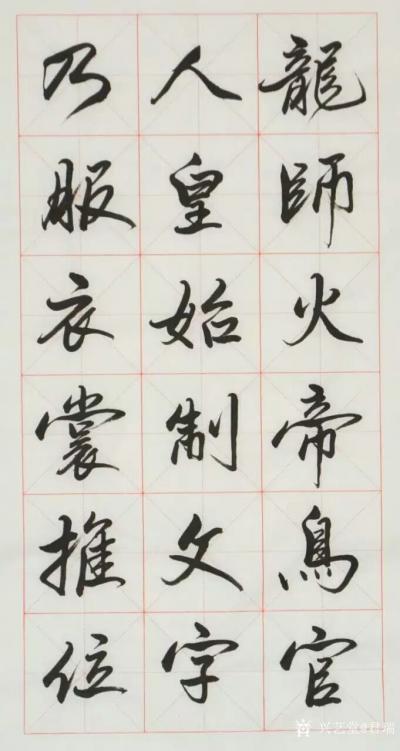 龍師火帝鳥官
人皇始制文字
乃服衣裳推位
兴艺堂@君瑞